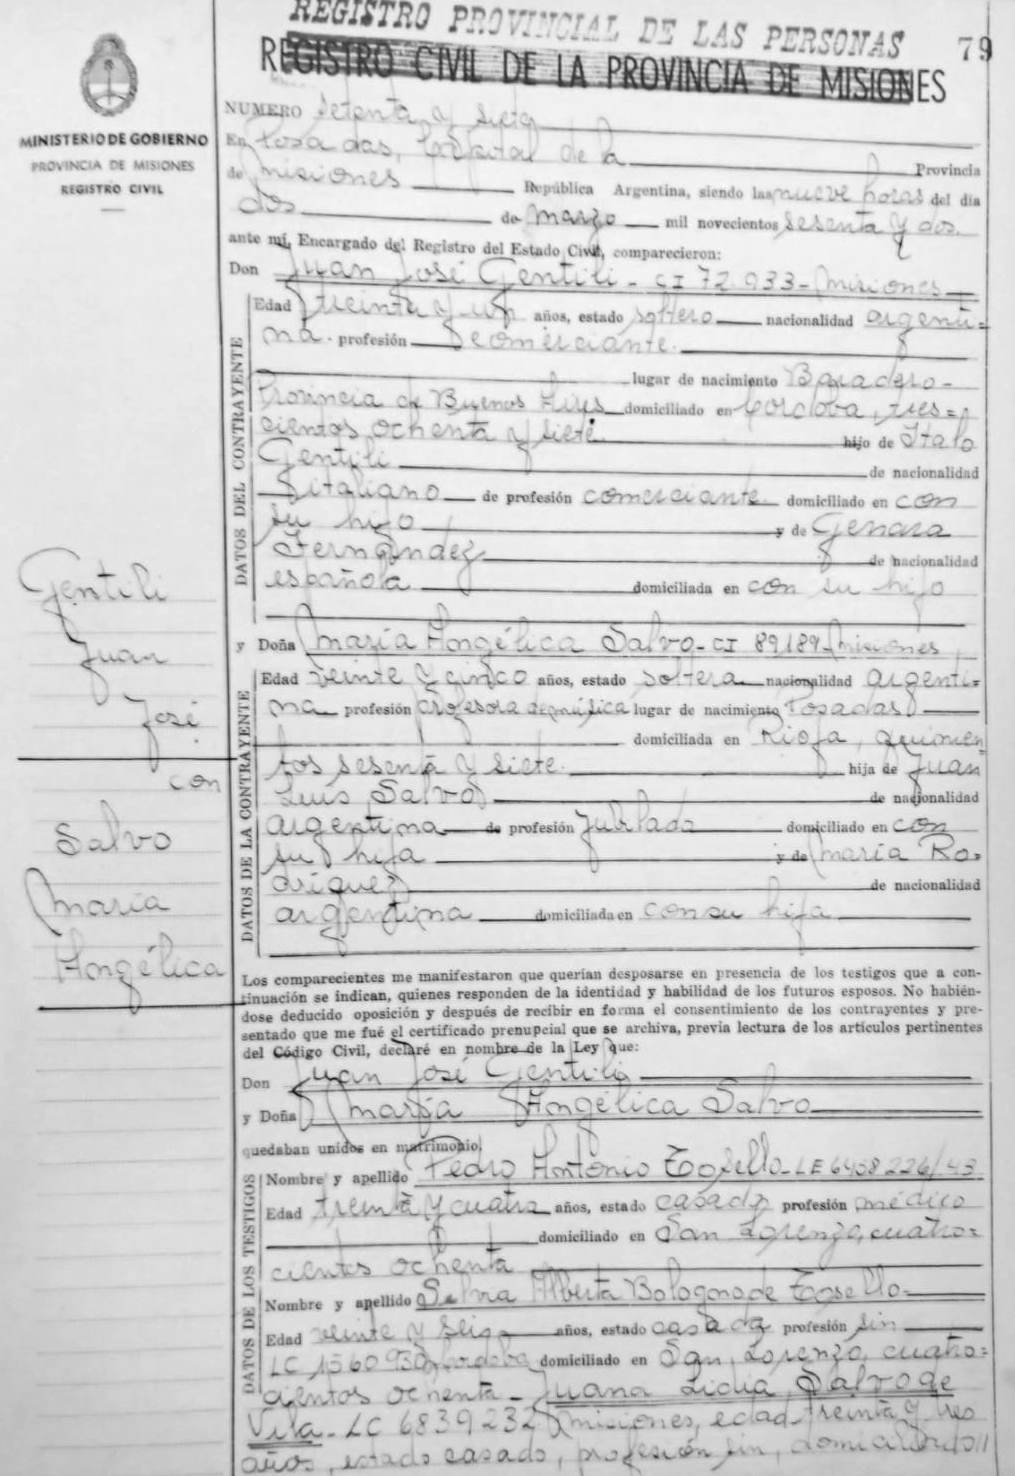 REGISTRO PROVINCIAL DE LAS PERSONAS
79
REGISTRO CIVIL DE LA PROVINCIA DE MISIONES
MINISTERIO DE GOBIERNO
PROVINCIA DE MISIONES
REGISTRO CIVIL
NUMERO setenta y siete
En Posadas, Capital de la Provincia
de Misiones República Argentina, siendo las nueve horas del día
dos de Marzo mil novecientos sesenta y dos.
ante mí, Encargado del Registro del Estado Civil, comparecieron:
Don Juan José Gentili - CI 72.933 - Misiones
DATOS DEL CONTRAYENTE
Edad treinta y un años, estado soltero nacionalidad argenti=
na. profesión comerciante.
lugar de nacimiento Baradero -
Provincia de Buenos Aires domiciliado en Córdoba, tres=
cientos ochenta y siete. hijo de Italo
Gentili de nacionalidad
italiano de profesión comerciante domiciliado en con
su hijo y de Genara
Fernández de nacionalidad
española domiciliada en con su hijo
y Doña María Angélica Salvo - CI 89189 - Misiones
DATOS DE LA CONTRAYENTE
Edad veinte y cinco años, estado soltera nacionalidad argenti=
na profesión profesora de música lugar de nacimiento Posadas
domiciliada en Rioja, quinien
tos sesenta y siete. hija de Juan
Luis Salvo de nacionalidad
argentina de profesión Jubilado domiciliado en con
su hija y de María Ro=
dríguez de nacionalidad
argentina domiciliada en con su hija
Gentili
Juan
José
con
Salvo
María
Angélica
Los comparecientes me manifestaron que querían desposarse en presencia de los testigos que a con-
tinuación se indican, quienes responden de la identidad y habilidad de los futuros esposos. No habién-
dose deducido oposición y después de recibir en forma el consentimiento de los contrayentes y pre-
sentado que me fué el certificado prenupcial que se archiva, previa lectura de los artículos pertinentes
del Código Civil, declaré en nombre de la Ley que:
Don Juan José Gentili
y Doña María Angélica Salvo
quedaban unidos en matrimonio.
DATOS DE LOS TESTIGOS
Nombre y apellido Pedro Antonio Tosello - LE 6408226/43
Edad treinta y cuatro años, estado casado profesión médico
domiciliado en San Lorenzo, cuatro=
cientos ochenta
Nombre y apellido Silvia Alberta Bologna de Tosello
Edad veinte y seis años, estado casada profesión sin
LC Córdoba domiciliado en San Lorenzo, cuatro=
cientos ochenta - Juana Lidia Salvo de
Vila - LC 6839232 Misiones, edad treinta y tres
años, estado casado, profesión sin, domiciliado